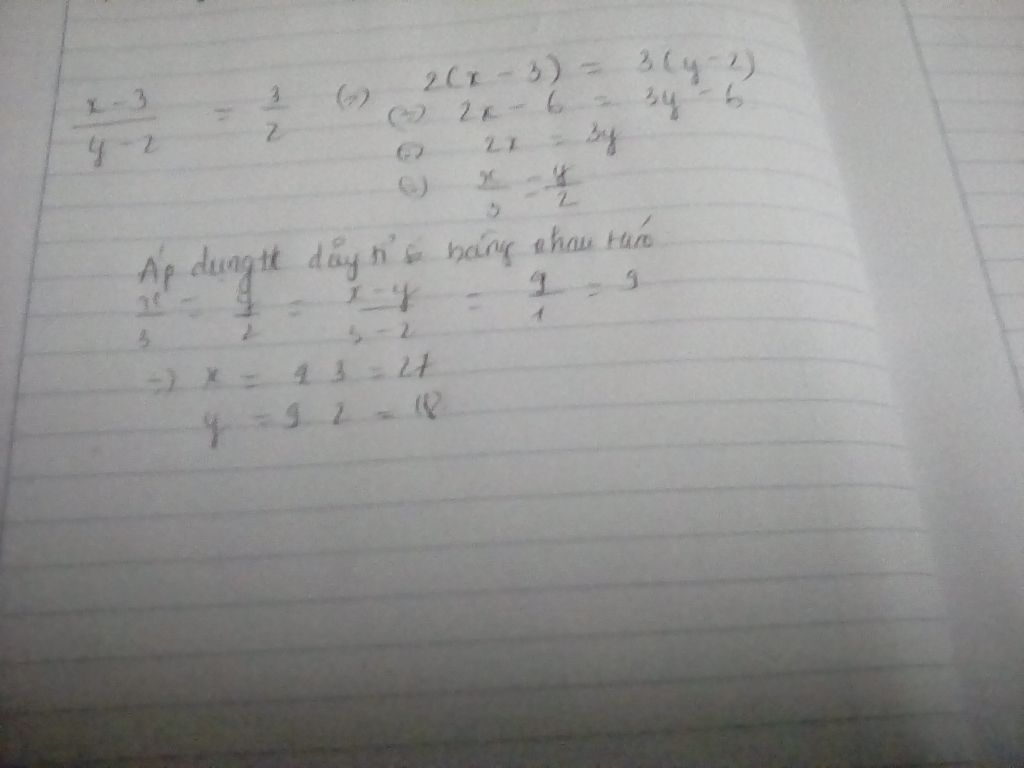 x-3/y-2 = 3/2 (=) 2(x-3) = 3(y-2)
(=) 2x-6 = 3y-6
(=) 2x = 3y
(=) x/3 = y/2
Áp dụng tc dãy tỉ số bằng nhau
x/3 = y/2 = x-y/3-2 = 9/1 = 9
=) x = 9 3 = 27
y = 9 2 = 18